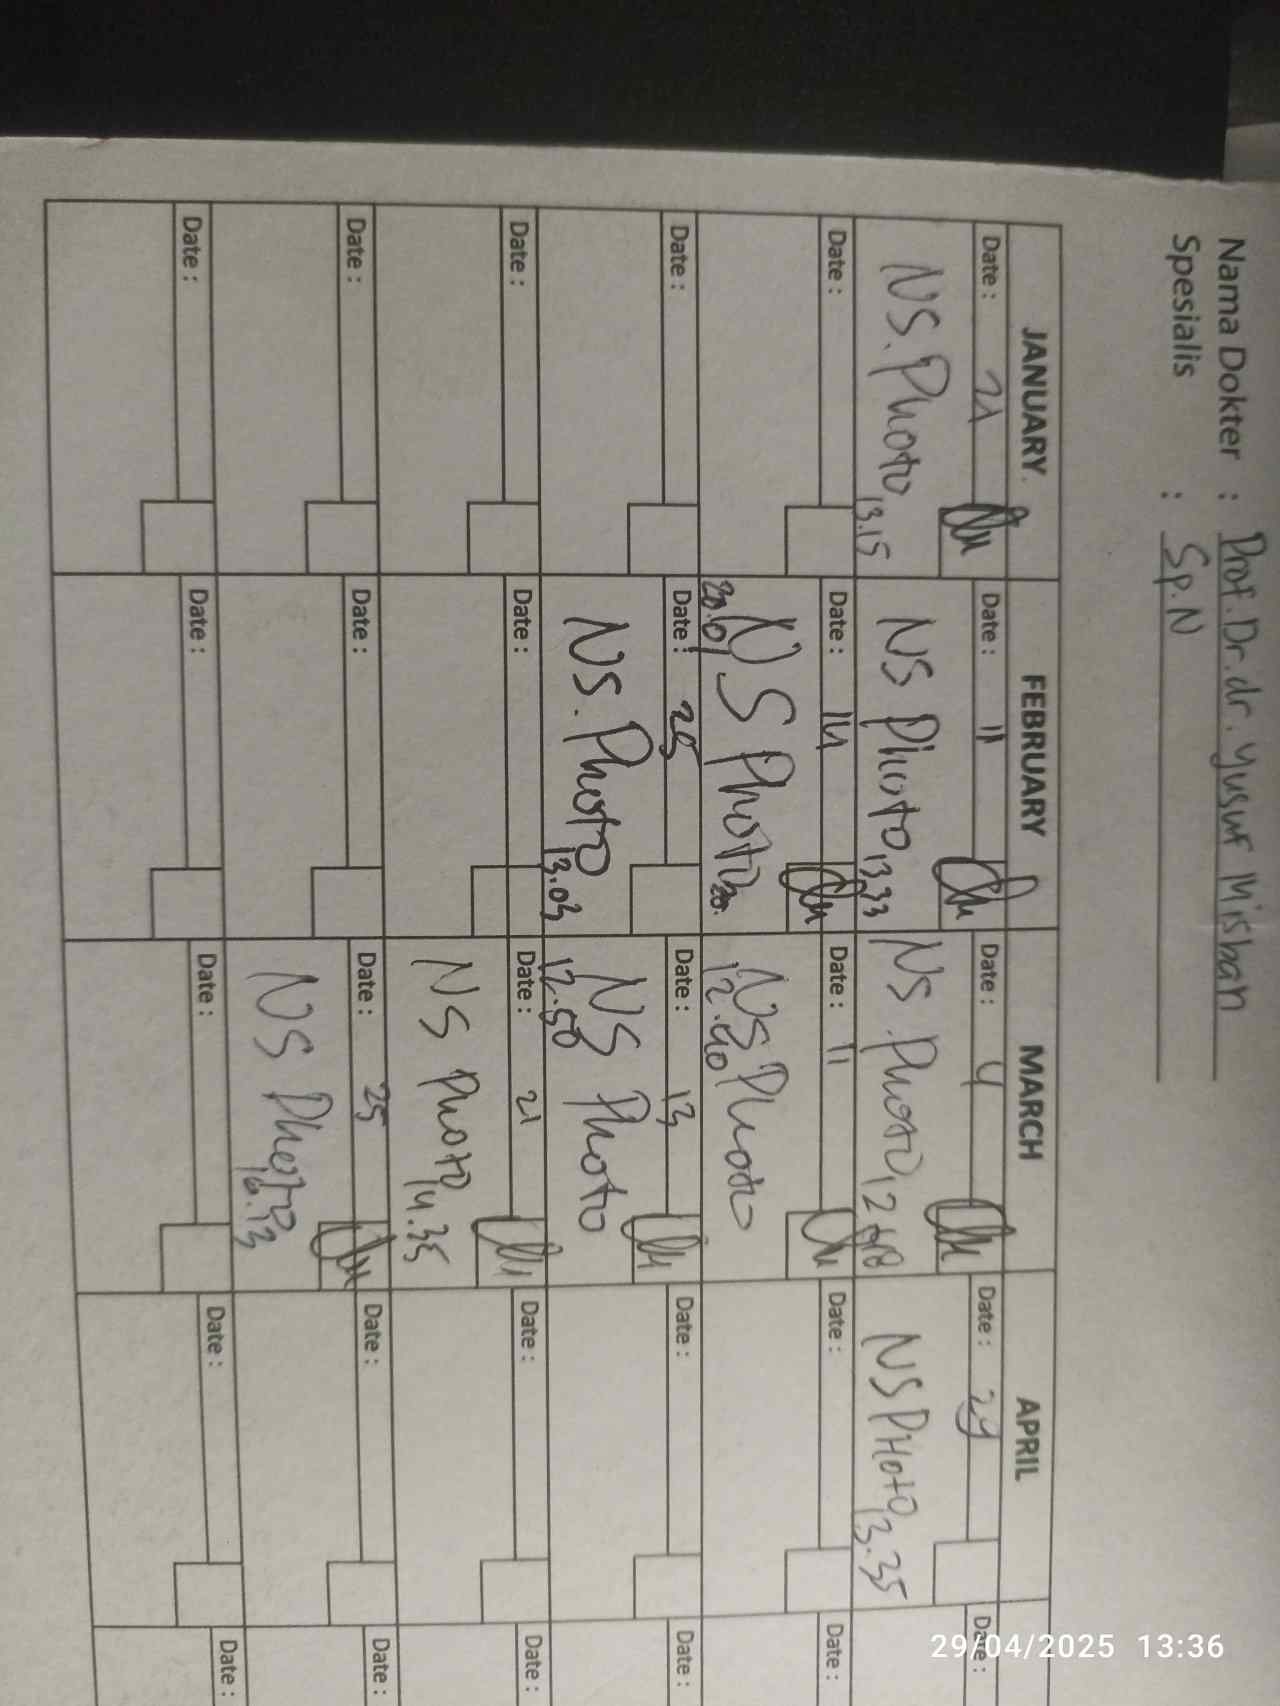 Nama Dokter : Prof. Dr. dr. Yusuf Misban
Spesialis : Sp.N
JANUARY. FEBRUARY MARCH APRIL
Date : 21 Date : 11 Date : 4 Date : 29 Date :
NS. Photo 13.15 NS Photo 13.33 NS Photo NS PHoto 13.35
Date : Date : 14 Date : 11 Date : Date :
NS Photo NS Photo
20.01 12.40
Date : Date : 25 Date : 13 Date : Date :
NS. Photo 13.03 NS Photo
12.50
Date : Date : Date : 21 Date : Date :
NS Photo 14.35
Date : Date : Date : 25 Date : Date :
NS Photo 16.13
Date : Date : Date : Date : Date :
29/04/2025 13:36